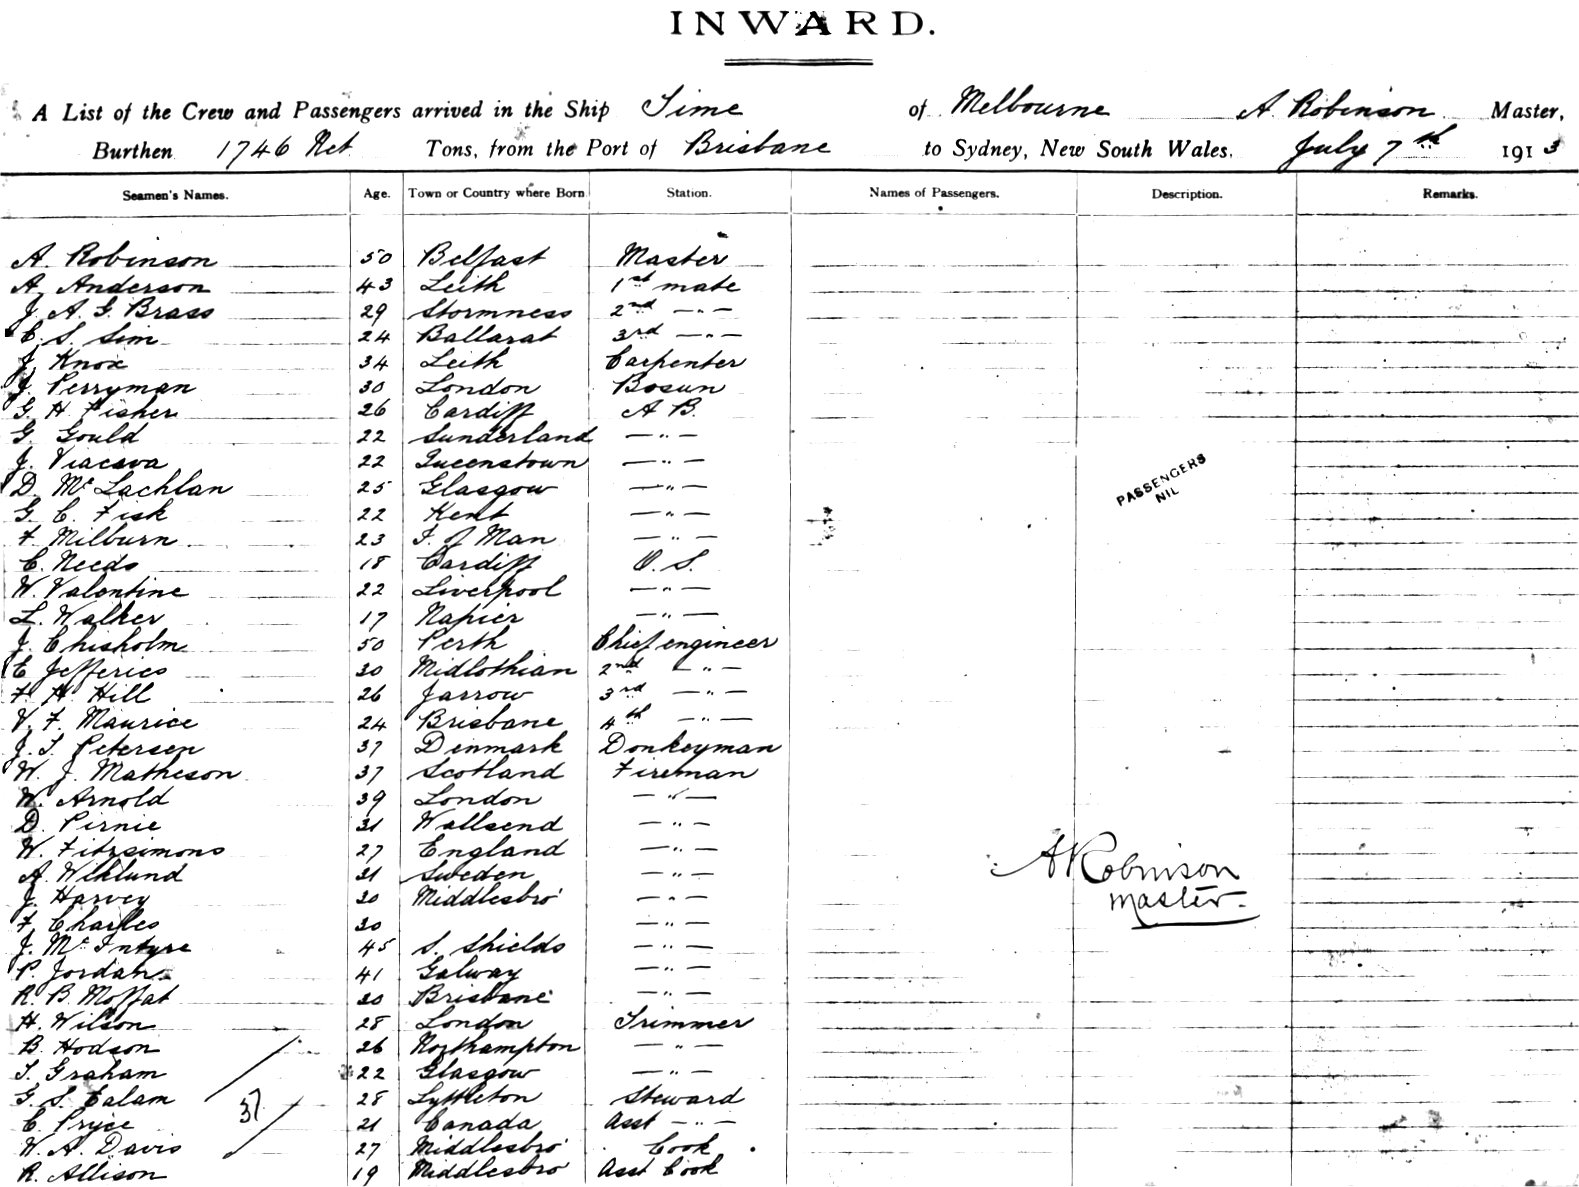 INWARD.
A List of the Crew and Passengers arrived in the Ship Time of Melbourne A. Robinson Master,
Burthen 1746 Net Tons, from the Port of Brisbane to Sydney, New South Wales. July 7th 1913
Seamen's Names. Age. Town or Country where Born Station. Names of Passengers. Description. Remarks.
A. Robinson 50 Belfast Master
A. Anderson 43 Leith 1st mate
J. A. G. Brass 29 Stormness 2nd —"—
C. S. Sim 24 Ballarat 3rd —"—
J. Knox 34 Leith Carpenter
J. Perryman 30 London Bosun
G. H. Fisher 26 Cardiff A B.
G. Gould 22 Sunderland —"—
J. Viacava 22 Queenstown —"—
D. Mc Lachlan 25 Glasgow —"—
G. C. Fisk 22 Kent —"—
F. Milburn 23 I. of Man —"—
C. Needs 18 Cardiff O. S.
W. Valentine 22 Liverpool —"—
L. Walker 17 Napier —"—
J. Chisholm 50 Perth Chief engineer
C. Jefferies 30 Midlothian 2nd —"—
F. H. Hill 26 Jarrow 3rd —"—
V. F. Maurice 24 Brisbane 4th —"—
J. T. Petersen 37 Denmark Donkeyman
W. J. Matheson 37 Scotland Fireman
W. Arnold 39 London —"—
D. Pirnie 31 Wallsend —"—
W. Fitzsimons 27 England —"—
A. Wiklund 31 Sweden —"—
J. Harvey 30 Middlesbro' —"—
F. Charles 30 —"—
J. Mc Intyre 45 S. Shields —"—
P. Jordan 41 Galway —"—
R. B. Moffat 30 Brisbane —"—
H. Wilson 28 London Trimmer
B. Hodson 26 Northampton —"—
T. Graham 22 Glasgow —"—
G. S. Ealam 28 Lyttleton Steward
C. Pryce 21 Canada Asst —"—
W. A. Davis 27 Middlesbro' Cook
R. Allison 19 Middlesbro' Asst Cook
37
PASSENGERS
NIL
A Robinson
Master.